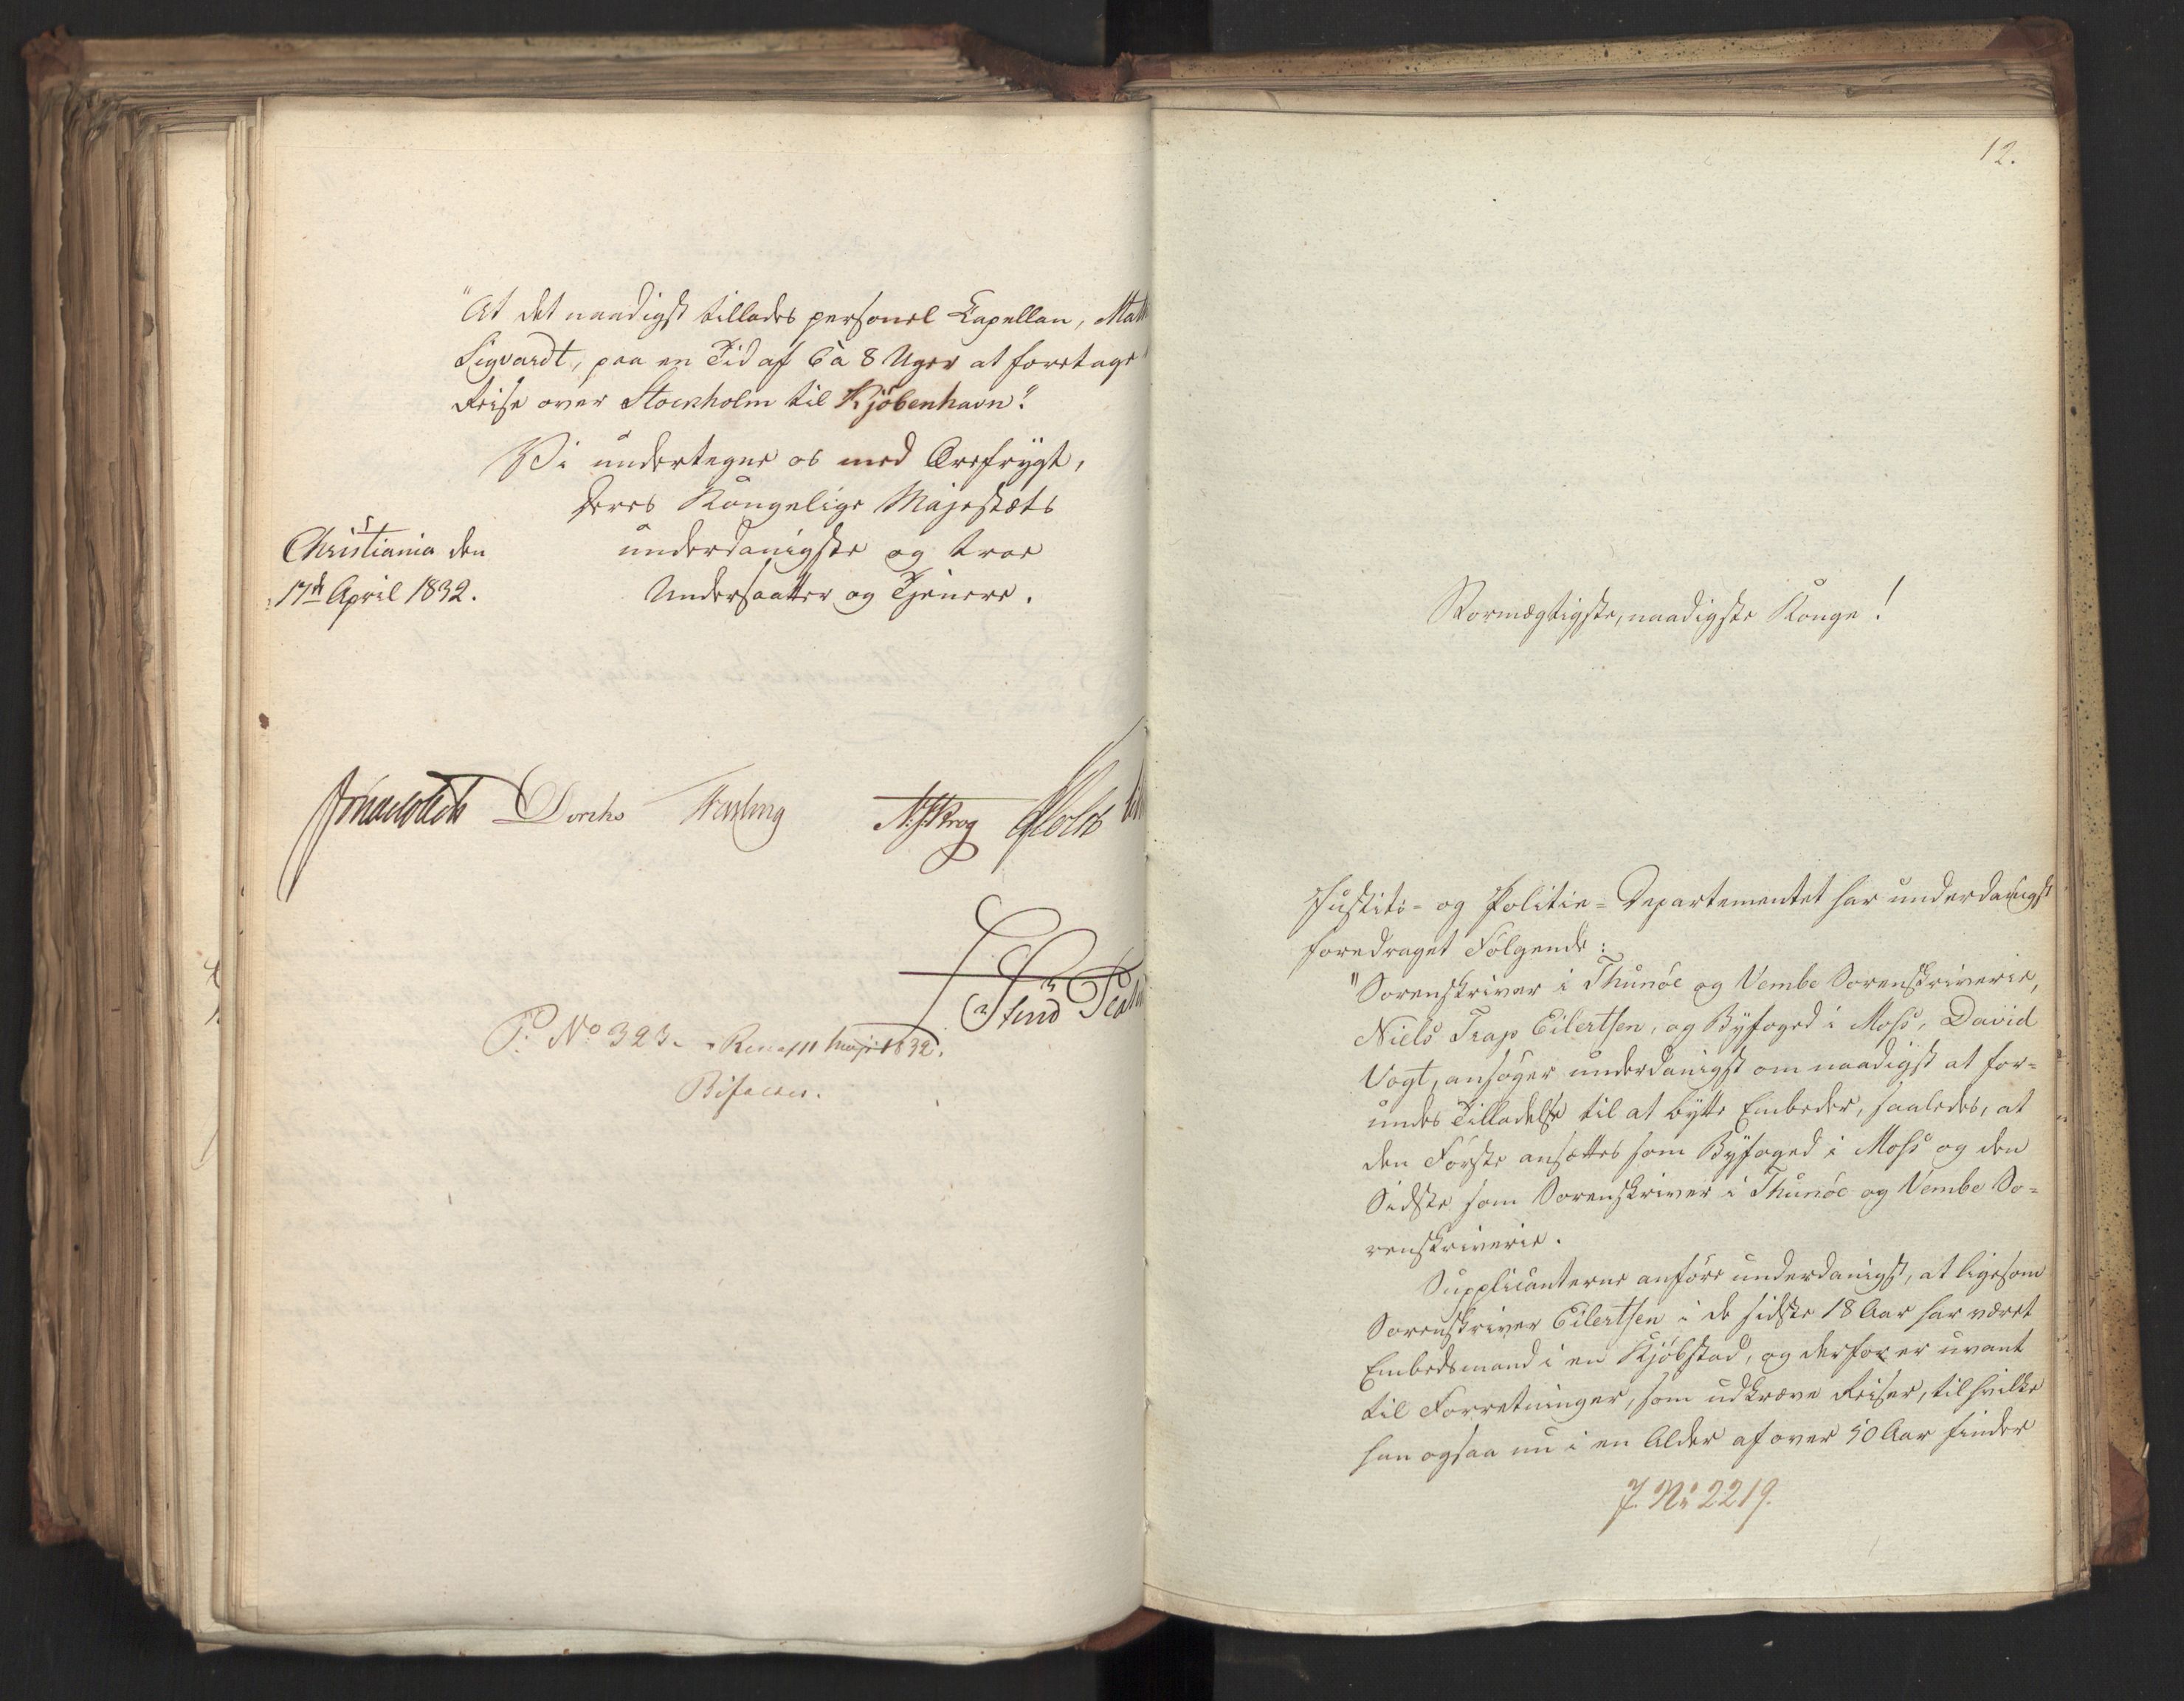 "At det naadigst tillades personel Capellan,
Sigvardt, paa en Tid af 6 à 8 Uger at foretage
Reise over Stockholm til Kjöbenhavn".
Vi undertegne os med Ærefrygt,
Deres Kongelige Majestæts
Christiania den
underdanigste og troe
17de April 1832.
Undersaatter og Tjenere.
Diriks Fasting
N.J. Krog Holst
P. No 323. 1832.
Bifaldes.
12.
Stormægtigste, naadigste Konge!
Justits- og Politie-Departementet har underdanigst
foredraget Følgende:
"Sorenskriver i Thunöe og Vembe Sorenskriverie,
Niels Trap Eilertsen, og Byfoged i Moss, David
Vogt, ansøger underdanigst om naadigst at for-
undes Tilladelse til at bytte Embeder, saaledes, at
den Første ansættes som Byfoged i Moss og den
Sidste som Sorenskriver i Thunöe og Vembe So-
renskriverie.
Supplicanterne anføre underdanigst, at ligesom
Sorenskriver Eilertsen i de sidste 18 Aar har været
Embedsmand i en Kjøbstad, og derfor er uvant
til Forretninger, som udkræve Reiser, til hvilke
han ogsaa nu i en Alder af over 50 Aar finder
J. No 2219.